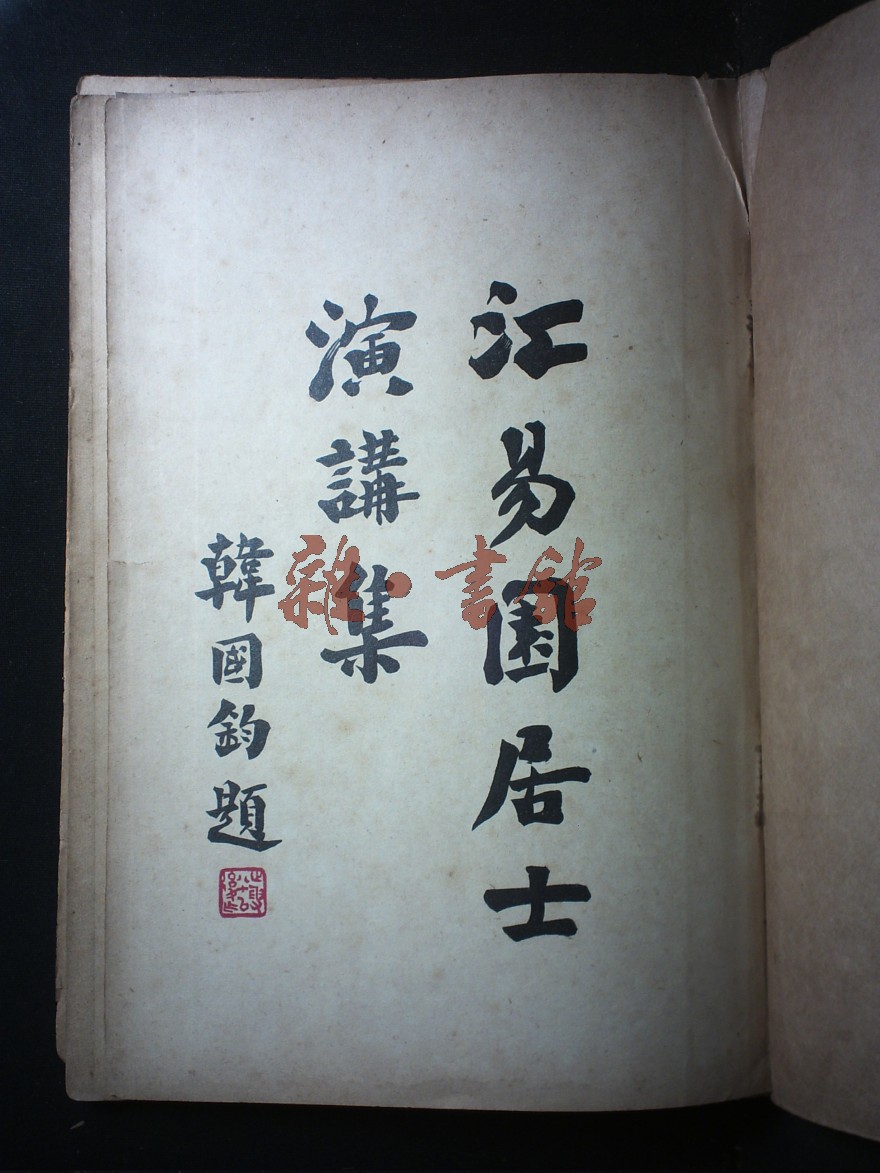 江易園居士
演講集
韓國鈞題
雜·書館